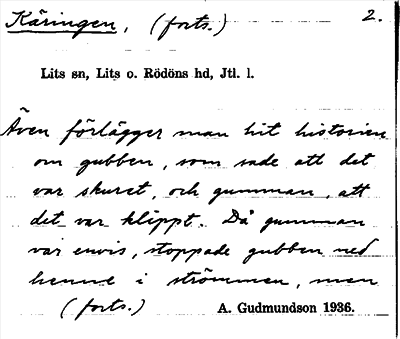 Käringen, (forts.) 2.
Lits sn, Lits o. Rödöns hd, Jtl. l.
Även förlägger man hit historien
om gubben, som sade att det
var skuret, och gumman, att
det var klippt. Då gumman
var envis, stoppade gubben ned
henne i strömmen, men
(forts.) A. Gudmundson 1936.